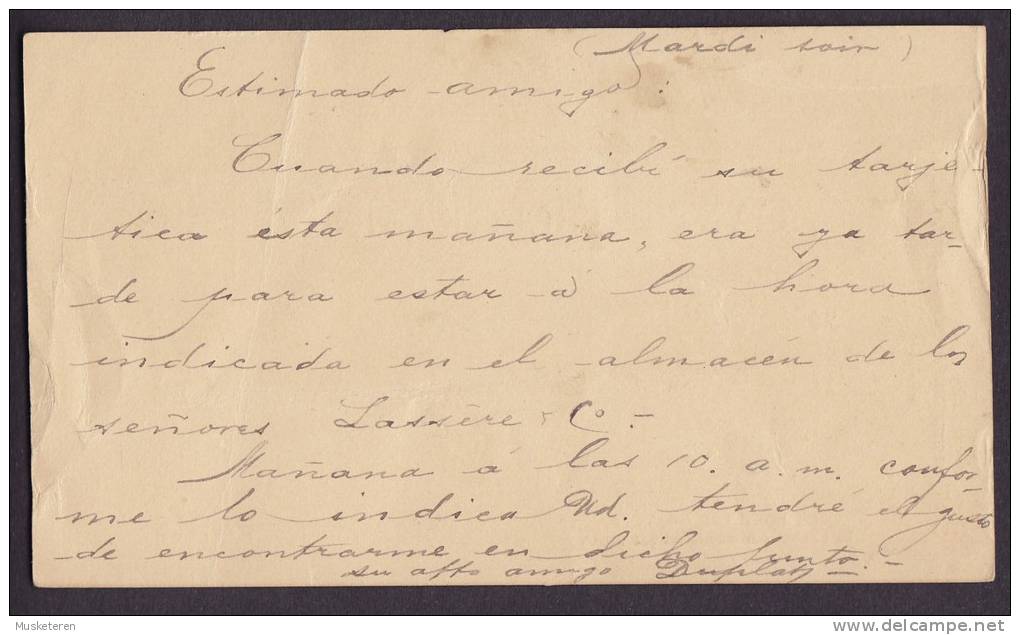 (Mardi soir)
Estimado amigo:
Cuando recibí su tarje-
tica ésta mañana, era ya tar-
de para estar á la hora
indicada en el almacén de los
señores Lassère & Co. -
Mañana á las 10. a.m. confor-
me lo indica Ud. tendré el gusto
de encontrarme en dicho punto. -
su affo amigo
Musketeren
delcampe.net